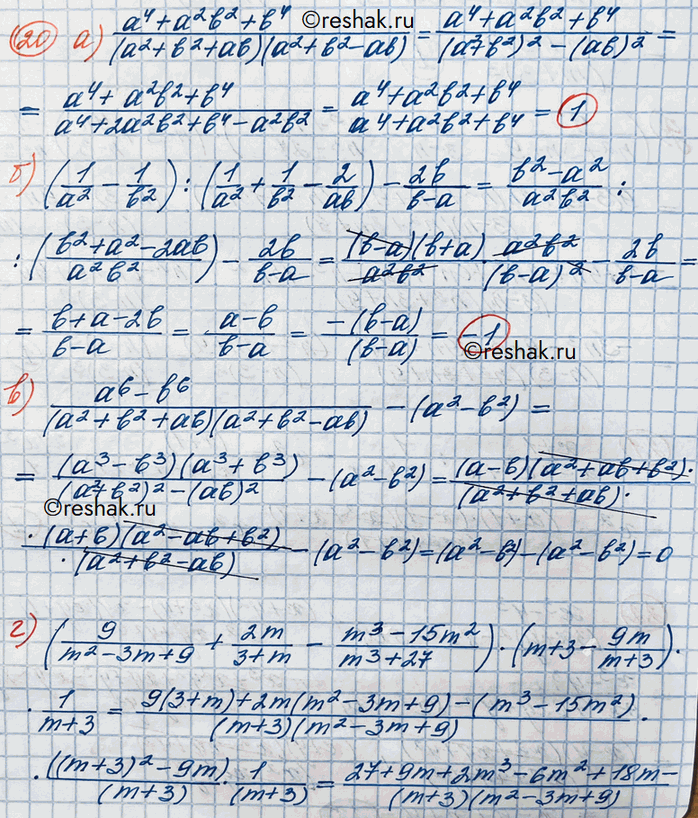 20 а) (a⁴+a²b²+b⁴)/((a²+b²+ab)(a²+b²-ab)) = (a⁴+a²b²+b⁴)/((a²+b²)²-(ab)²) =
©reshak.ru
= (a⁴+a²b²+b⁴)/(a⁴+2a²b²+b⁴-a²b²) = (a⁴+a²b²+b⁴)/(a⁴+a²b²+b⁴) = 1
б) (1/a² - 1/b²) : (1/a² + 1/b² - 2/ab) - 2b/(b-a) = (b²-a²)/(a²b²) :
: ((b²+a²-2ab)/(a²b²)) - 2b/(b-a) = (b-a)(b+a)/(a²b²) · a²b²/(b-a)² - 2b/(b-a) =
= (b+a-2b)/(b-a) = (a-b)/(b-a) = -(b-a)/(b-a) = -1
©reshak.ru
в) (a⁶-b⁶)/((a²+b²+ab)(a²+b²-ab)) - (a²-b²) =
= (a³-b³)(a³+b³)/((a²+b²)²-(ab)²) - (a²-b²) = (a-b)(a²+ab+b²)·/(a²+b²+ab)·
©reshak.ru
·(a+b)(a²-ab+b²)/·(a²+b²-ab) - (a²-b²) = (a²-b²)-(a²-b²) = 0
г) (9/(m²-3m+9) + 2m/(3+m) - (m³-15m²)/(m³+27)) · (m+3 - 9m/(m+3)) ·
· 1/(m+3) = (9(3+m)+2m(m²-3m+9)-(m³-15m²))/((m+3)(m²-3m+9)) ·
· ((m+3)²-9m)/(m+3) · 1/(m+3) = (27+9m+2m³-6m²+18m-)/((m+3)(m²-3m+9))